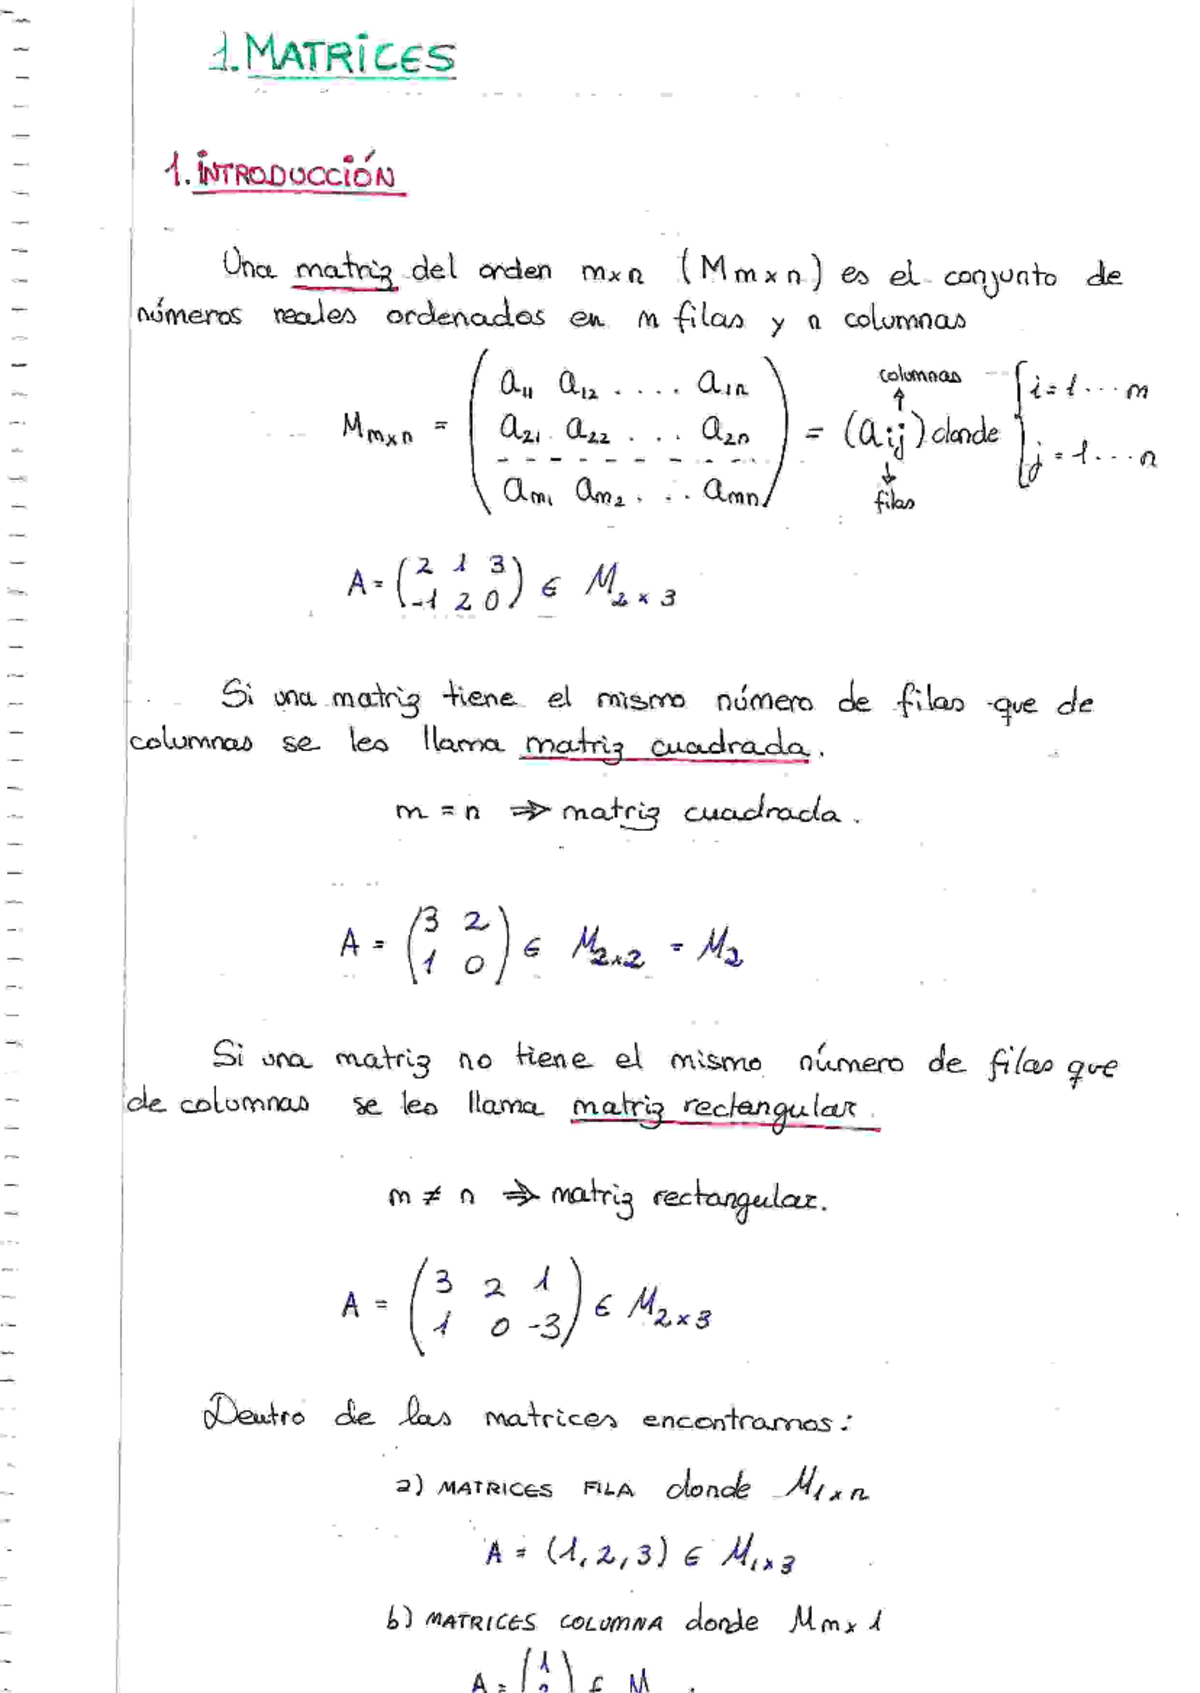 1. MATRICES
1. INTRODUCCIÓN
Una matriz del orden m×n (M m×n) es el conjunto de
números reales ordenados en m filas y n columnas
columnas
M m×n = ( a11 a12 .... a1n ) = (aij) donde { i = 1 ... m
a21 a22 ... a2n
j = 1 ... n
am1 am2 ... amn
filas
A = ( 2 1 3 ) ∈ M2×3
-1 2 0
Si una matriz tiene el mismo número de filas que de
columnas se les llama matriz cuadrada.
m = n ⇒ matriz cuadrada.
A = ( 3 2 ) ∈ M2×2 = M2
1 0
Si una matriz no tiene el mismo número de filas que
de columnas se les llama matriz rectangular.
m ≠ n ⇒ matriz rectangular.
A = ( 3 2 1 ) ∈ M2×3
1 0 -3
Dentro de las matrices encontramos:
a) MATRICES FILA donde M1×n
A = (1, 2, 3) ∈ M1×3
b) MATRICES COLUMNA donde M m×1
A = ( 1 ) ∈ M